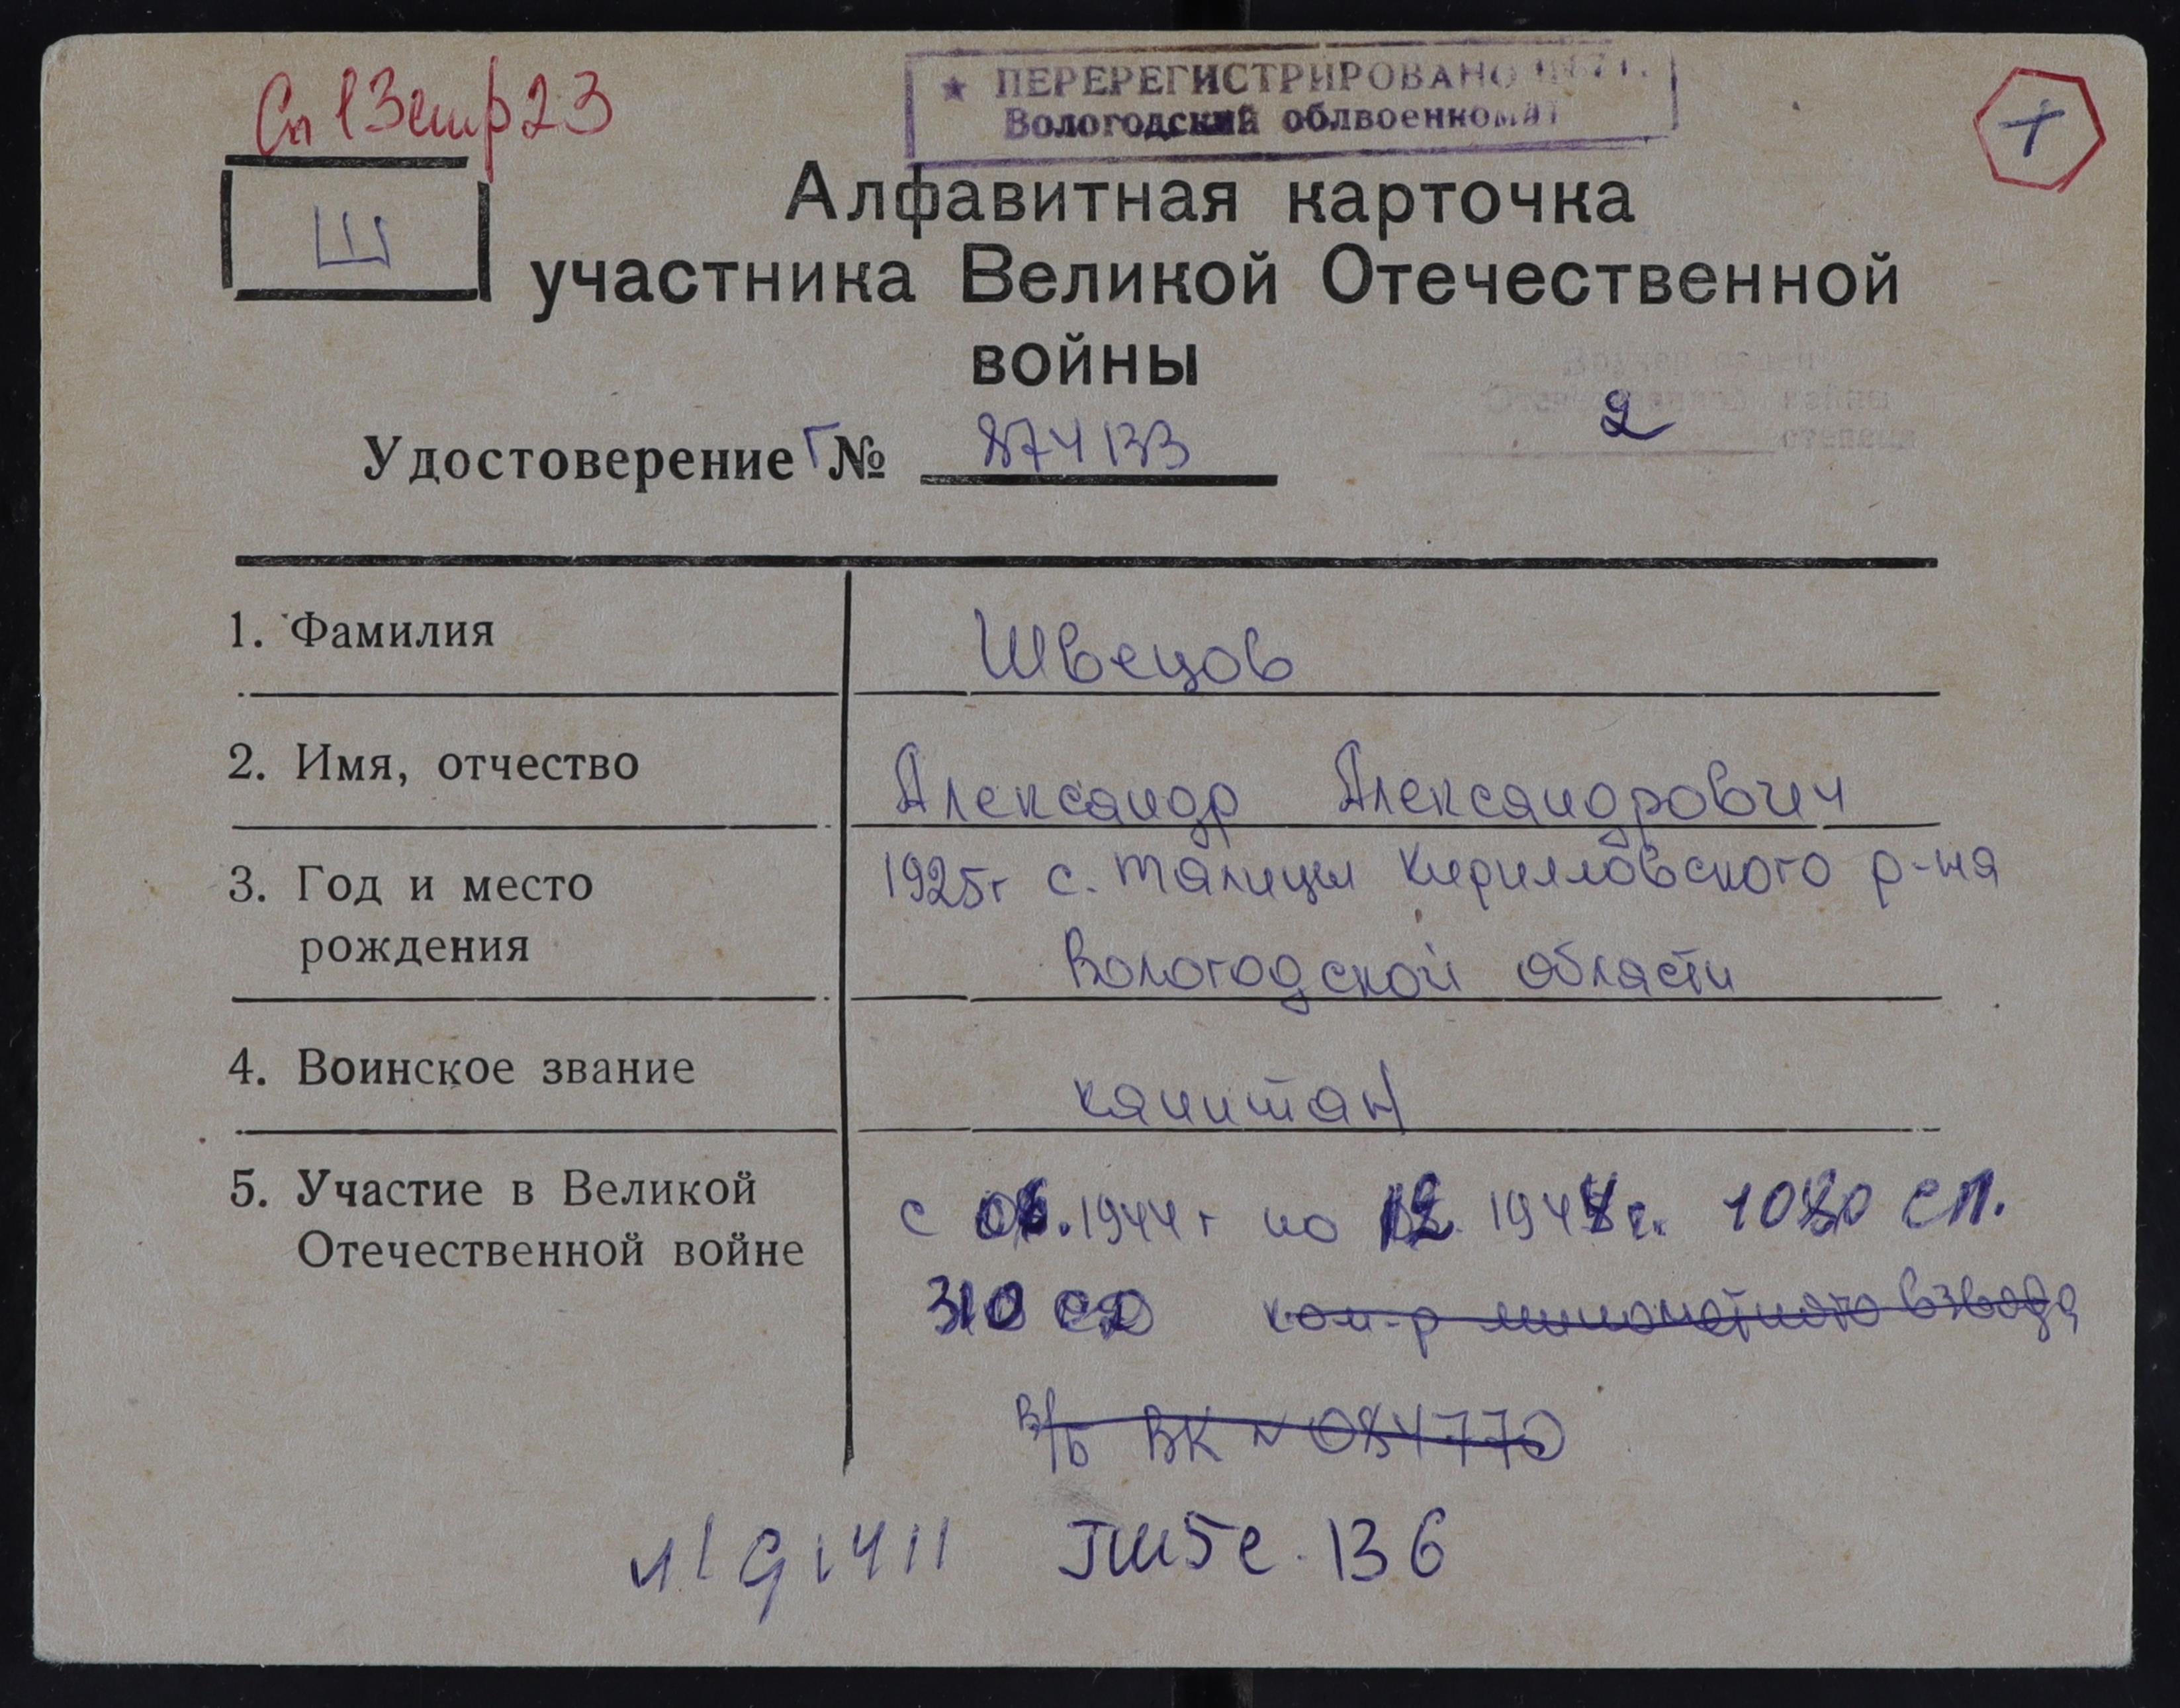 Сп 13 стр 23
★ ПЕРЕРЕГИСТРИРОВАНО
Вологодский облвоенкомат
Ш
Алфавитная карточка
участника Великой Отечественной
войны
2
степени
Удостоверение Г № 874133
1. Фамилия Швецов
2. Имя, отчество Александр Александрович
3. Год и место 1925г с. Талицы Кирилловского р-на
рождения Вологодской области
4. Воинское звание капитан
5. Участие в Великой с 06.1944 г по 12.1944г. 1080 СП.
Отечественной войне 310 СД ком-р минометного взвода
в/б ВК № 084770